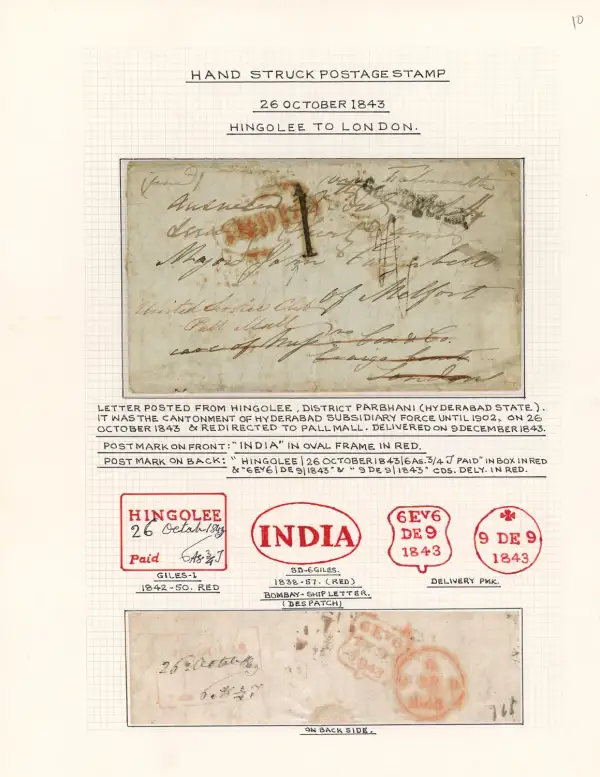 10
HAND STRUCK POSTAGE STAMP
26 OCTOBER 1843
HINGOLEE TO LONDON.
1
Major John Campbell
Of Melfort
United Service Club
Pall Mall
care of Messrs Cox & Co.
London
LETTER POSTED FROM HINGOLEE, DISTRICT PARBHANI (HYDERABAD STATE).
IT WAS THE CANTONMENT OF HYDERABAD SUBSIDIARY FORCE UNTIL 1902, ON 26
OCTOBER 1843 & REDIRECTED TO PALL MALL. DELIVERED ON 9 DECEMBER 1843.
POSTMARK ON FRONT: "INDIA" IN OVAL FRAME IN RED.
POST MARK ON BACK: "HINGOLEE | 26 OCTOBER 1843 | 6 AS. 3/4 J PAID" IN BOX IN RED
& "6EV6 | DE 9 | 1843" & "9 DE 9 | 1843" CDS. DELY. IN RED.
HINGOLEE
26 Octob 1843
Paid 6 As 3/4 J
GILES-1
1842-50. RED
INDIA
SD-6 GILES.
1838-57. (RED)
BOMBAY-SHIP LETTER.
(DESPATCH)
6EV6
DE 9
1843
9 DE 9
1843
DELIVERY PMK.
26 October
6EV6
1843
ON BACK SIDE.